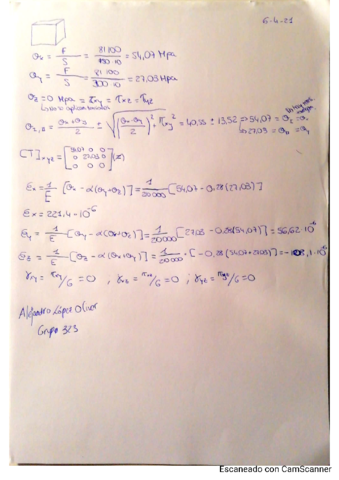 6-4-21
σx = F/S = 81100/150·10 = 54,07 Mpa
σy = F/S = 81100/300·10 = 27,03 Mpa
σz = 0 Mpa = τxy = τxz = τyz
σ1,2 = σx+σy/2 ± √((σx-σy/2)² + τxy²) = 40,55 ± 13,52 → 54,07 = σ
→ 27,03 = σ
[T]xyz = [54,07 0 0
0 27,03 0
0 0 0]
Ex = 1/E [σx - α(σy+σz)] = 1/20000 [54,07 - 0,28(27,03)]
Ex = 221,4·10⁻⁶
Ey = 1/E [σy - α(σx+σz)] = 1/20000 [27,03 - 0,28(54,07)] = 56,62·10⁻⁶
Ez = 1/E [σz - α(σx+σy)] = 1/20000 · [-0,28(54,07+27,03)] =
γxy = τxy/G = 0 ; γxz = τxz/G = 0 ; γyz = τyz/G = 0
Alejandro López
Grupo 323
Escaneado con CamScanner